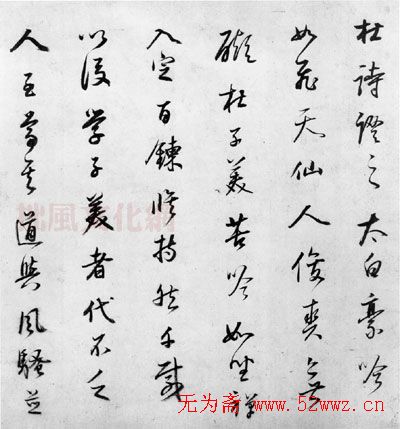 杜詩證之太白豪吟
如飛天仙人俊爽無
礙杜子美苦吟如坐禪
入定百鍊修持然千載
以後學子美者代不乏
人至尊其道與風騷並
无为斋 www.52wwz.cn